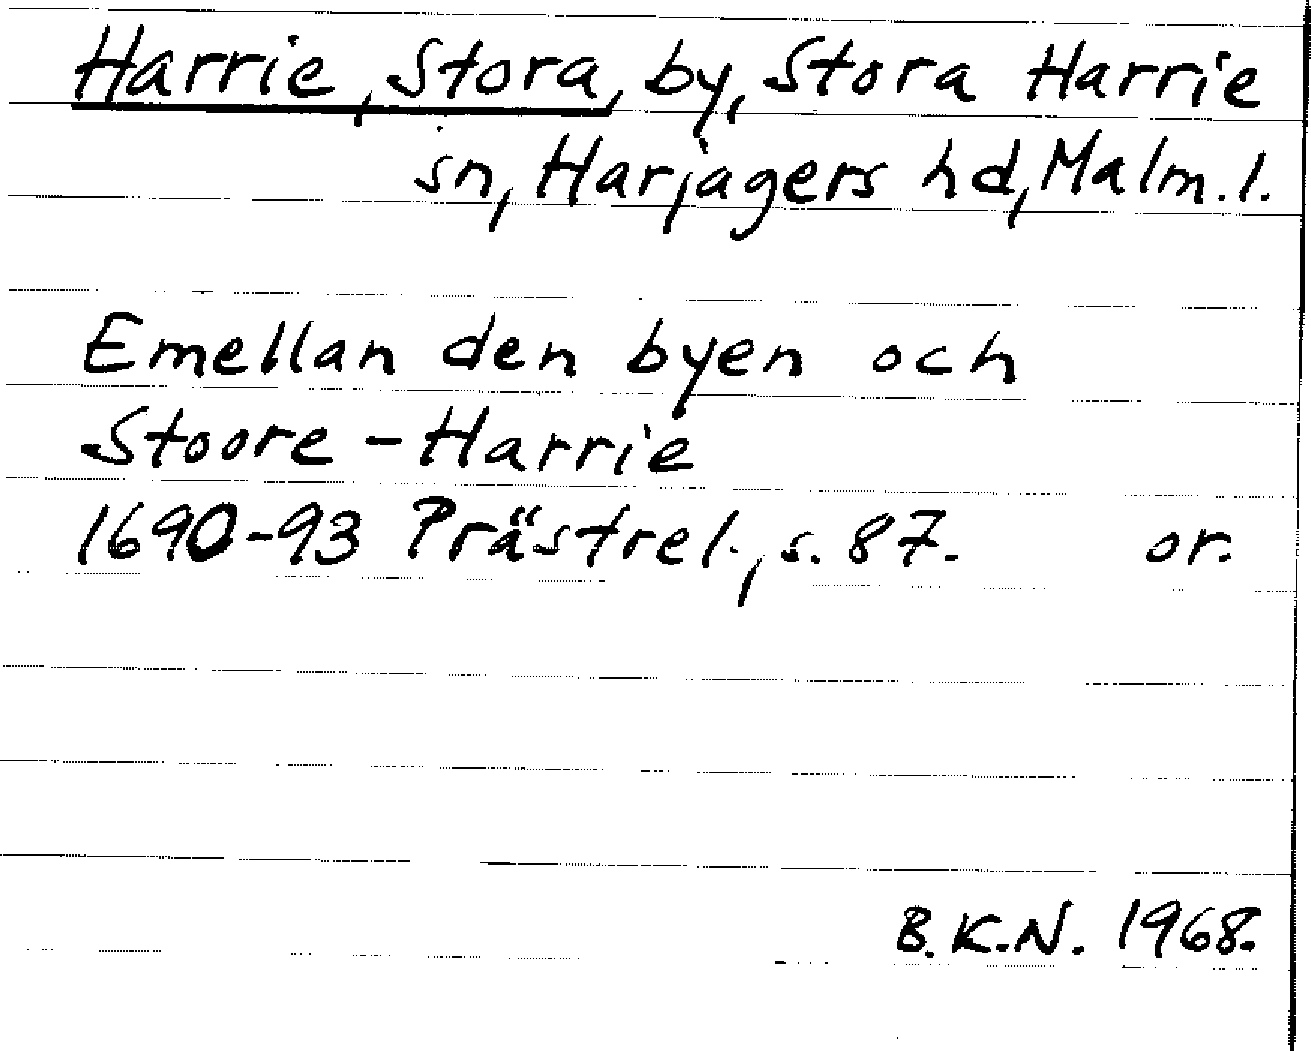 Harrie, Stora, by, Stora Harrie
sn, Harjagers hd, Malm.l.
Emellan den byen och
Stoore-Harrie
1690-93 Prästrel., s. 87. or.
B.K.N. 1968.